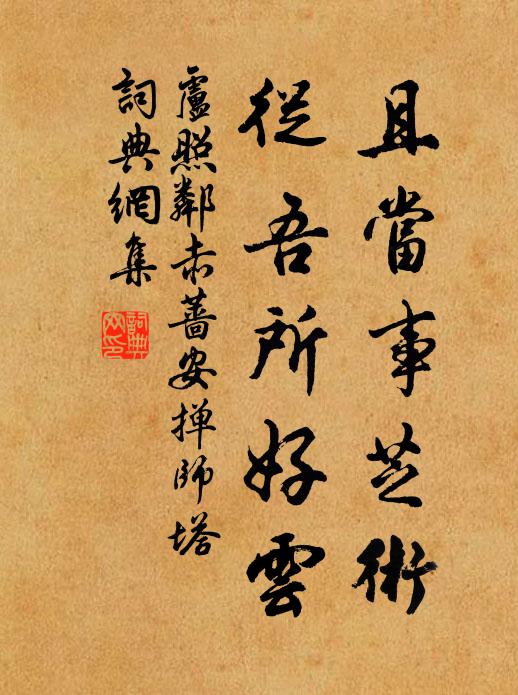 且當事芝術
從吾所好雲
盧照鄰赤薔安掸師塔
詞典網集
詞典
网印